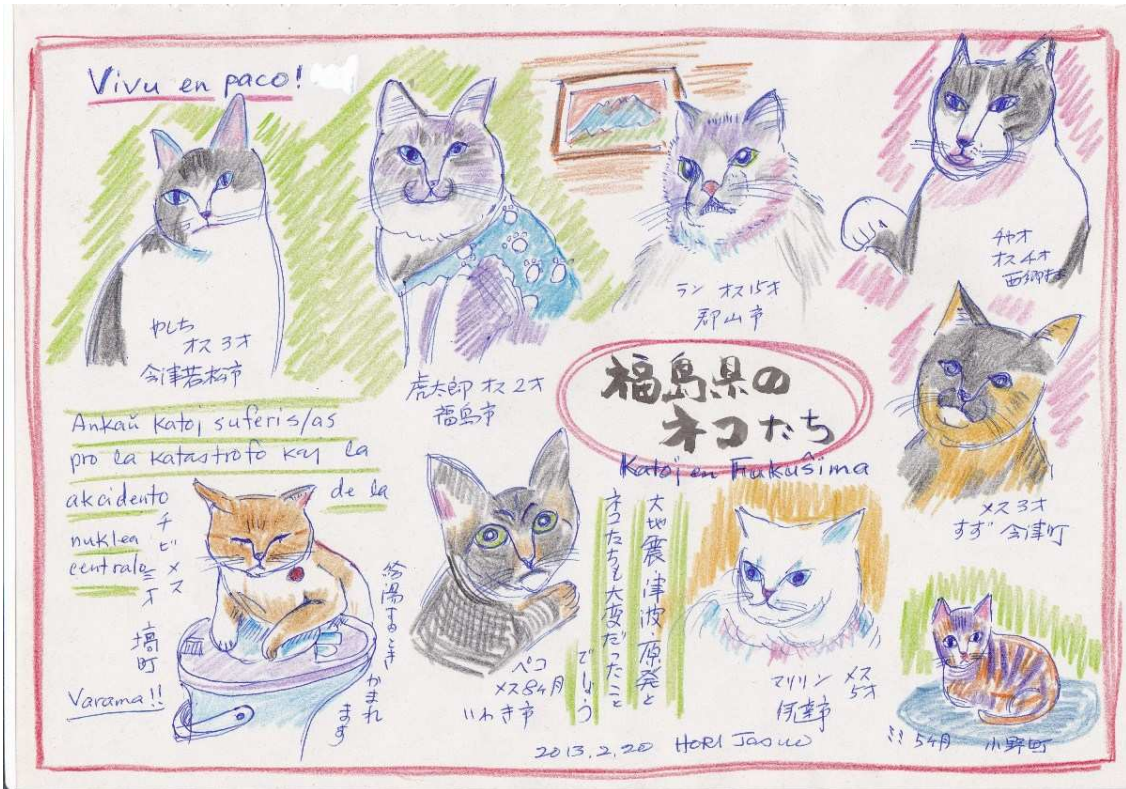 Vivu en paco!
やしち
オス 3才
会津若松市
虎太郎 オス 2才
福島市
ラン オス 15才
郡山市
チャオ
オス 4才
西郷村
福島県の
ネコたち
Katoj en Fukuŝima
メス 3才
すず 会津町
Ankaŭ katoj suferis/as
pro la katastrofo kaj la
akcidento de la
nuklea
centralo
チビ メス
三才 塙町
給湯するとき
かまれ
ます
Varama!!
ペコ
メス 8ヶ月
いわき市
大地震、津波、原発と
ネコたちも大変だったこと
でしょう
マリリン メス
5才
伊達市
ミミ 5ヶ月 小野町
2013.2.20 HORI Jasuo